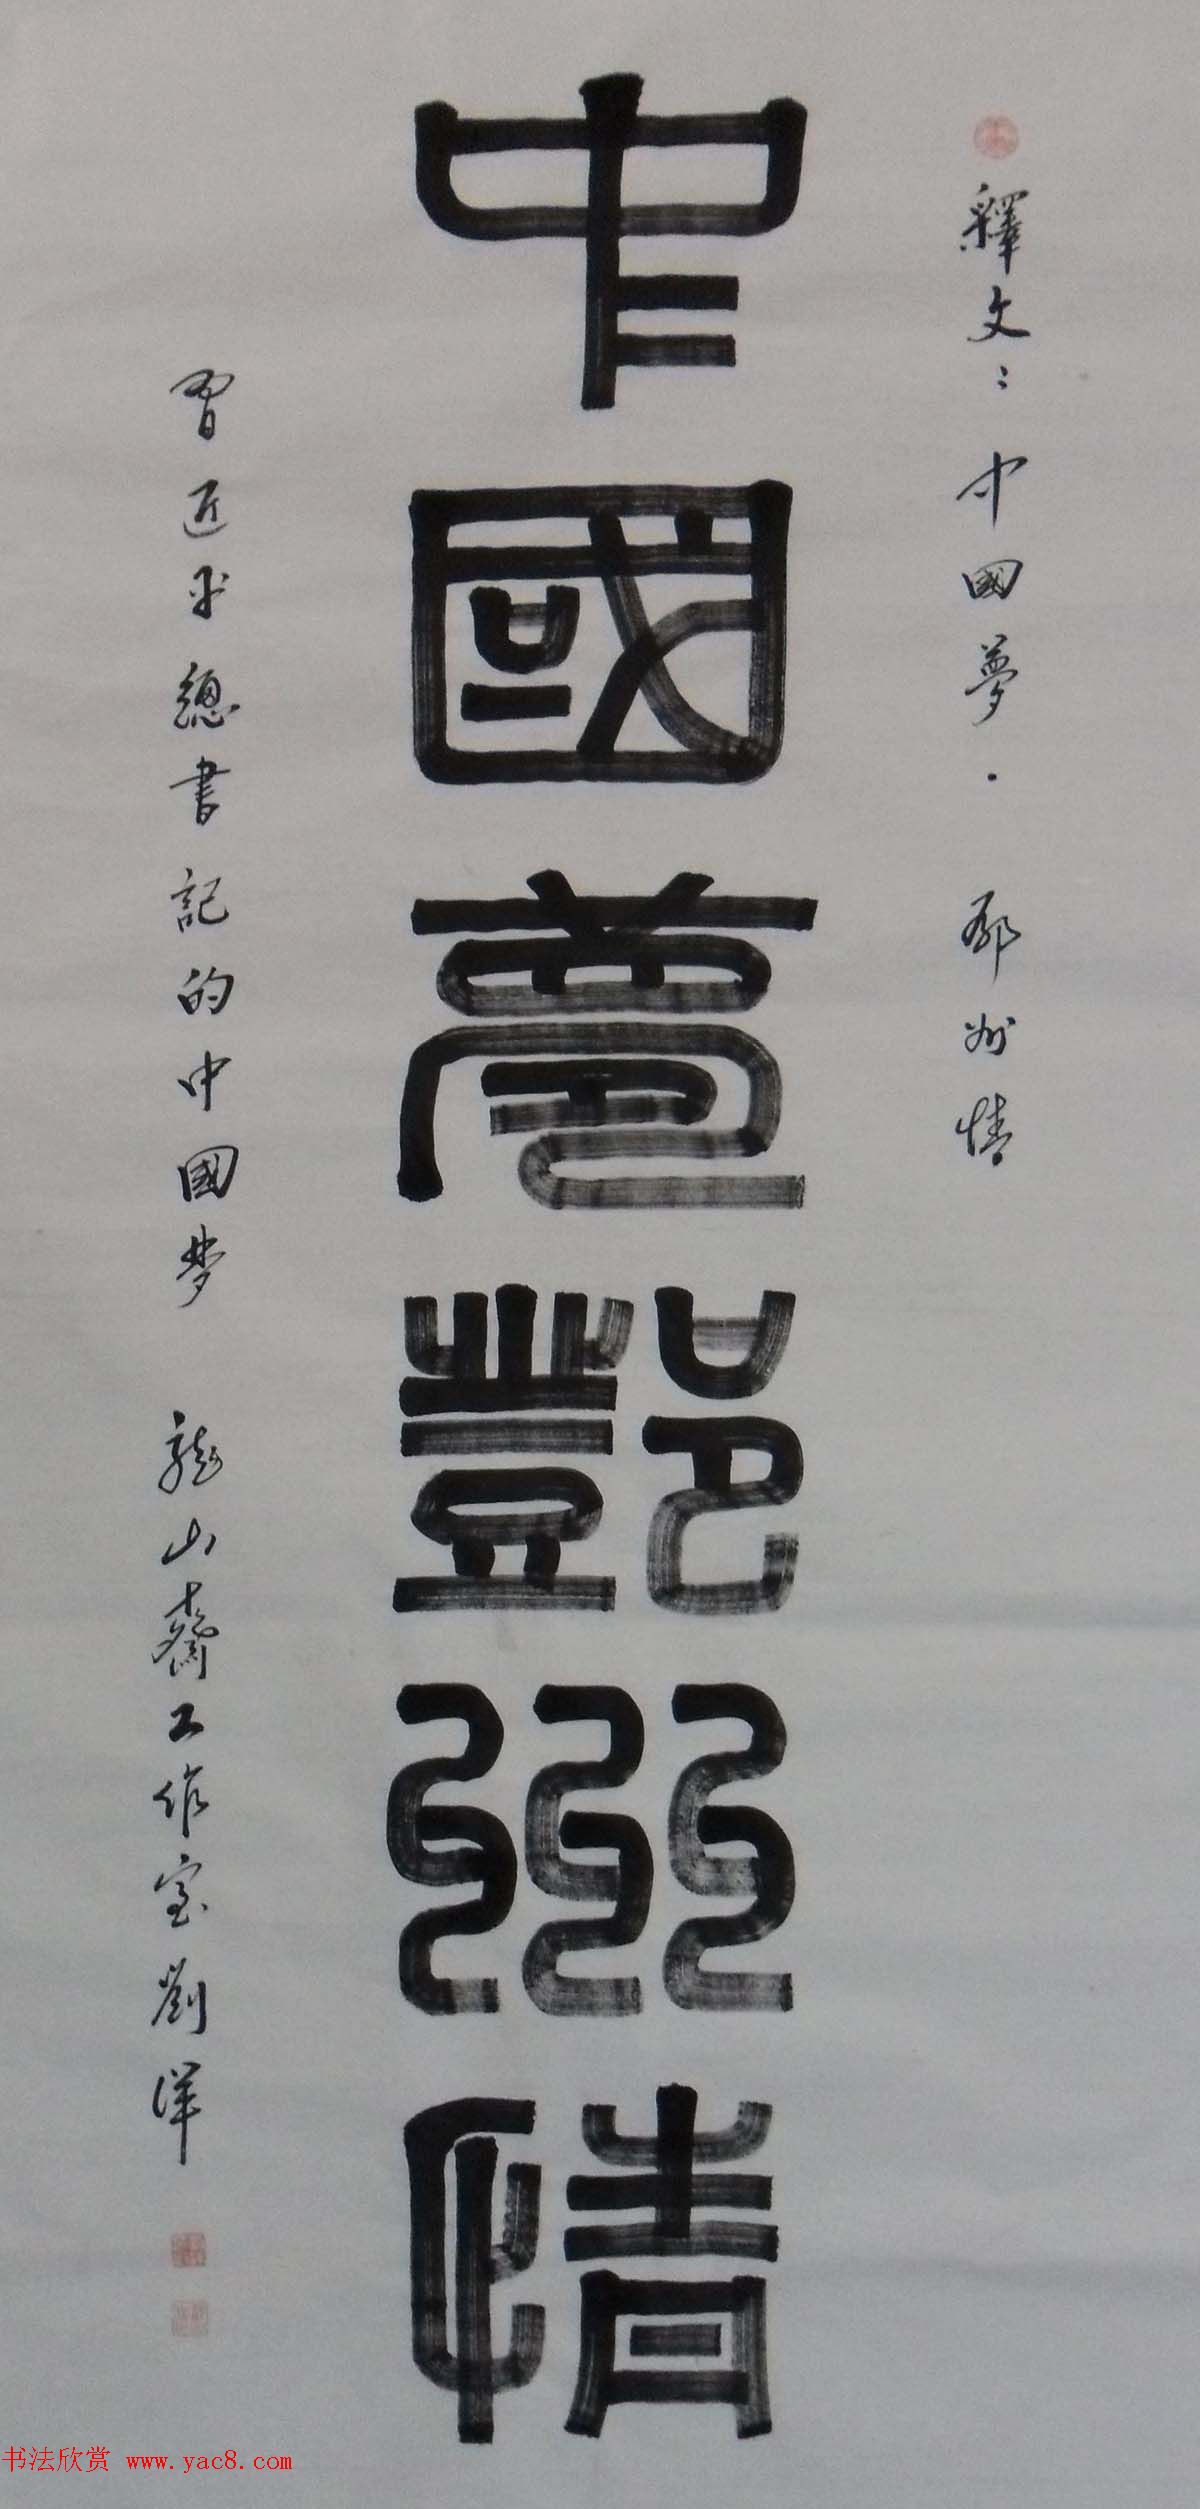 釋文：中國夢．鄧州情
中國夢鄧州情
習近平總書記的中國梦 龍山齋工作室劉洋
书法欣赏 www.yac8.com